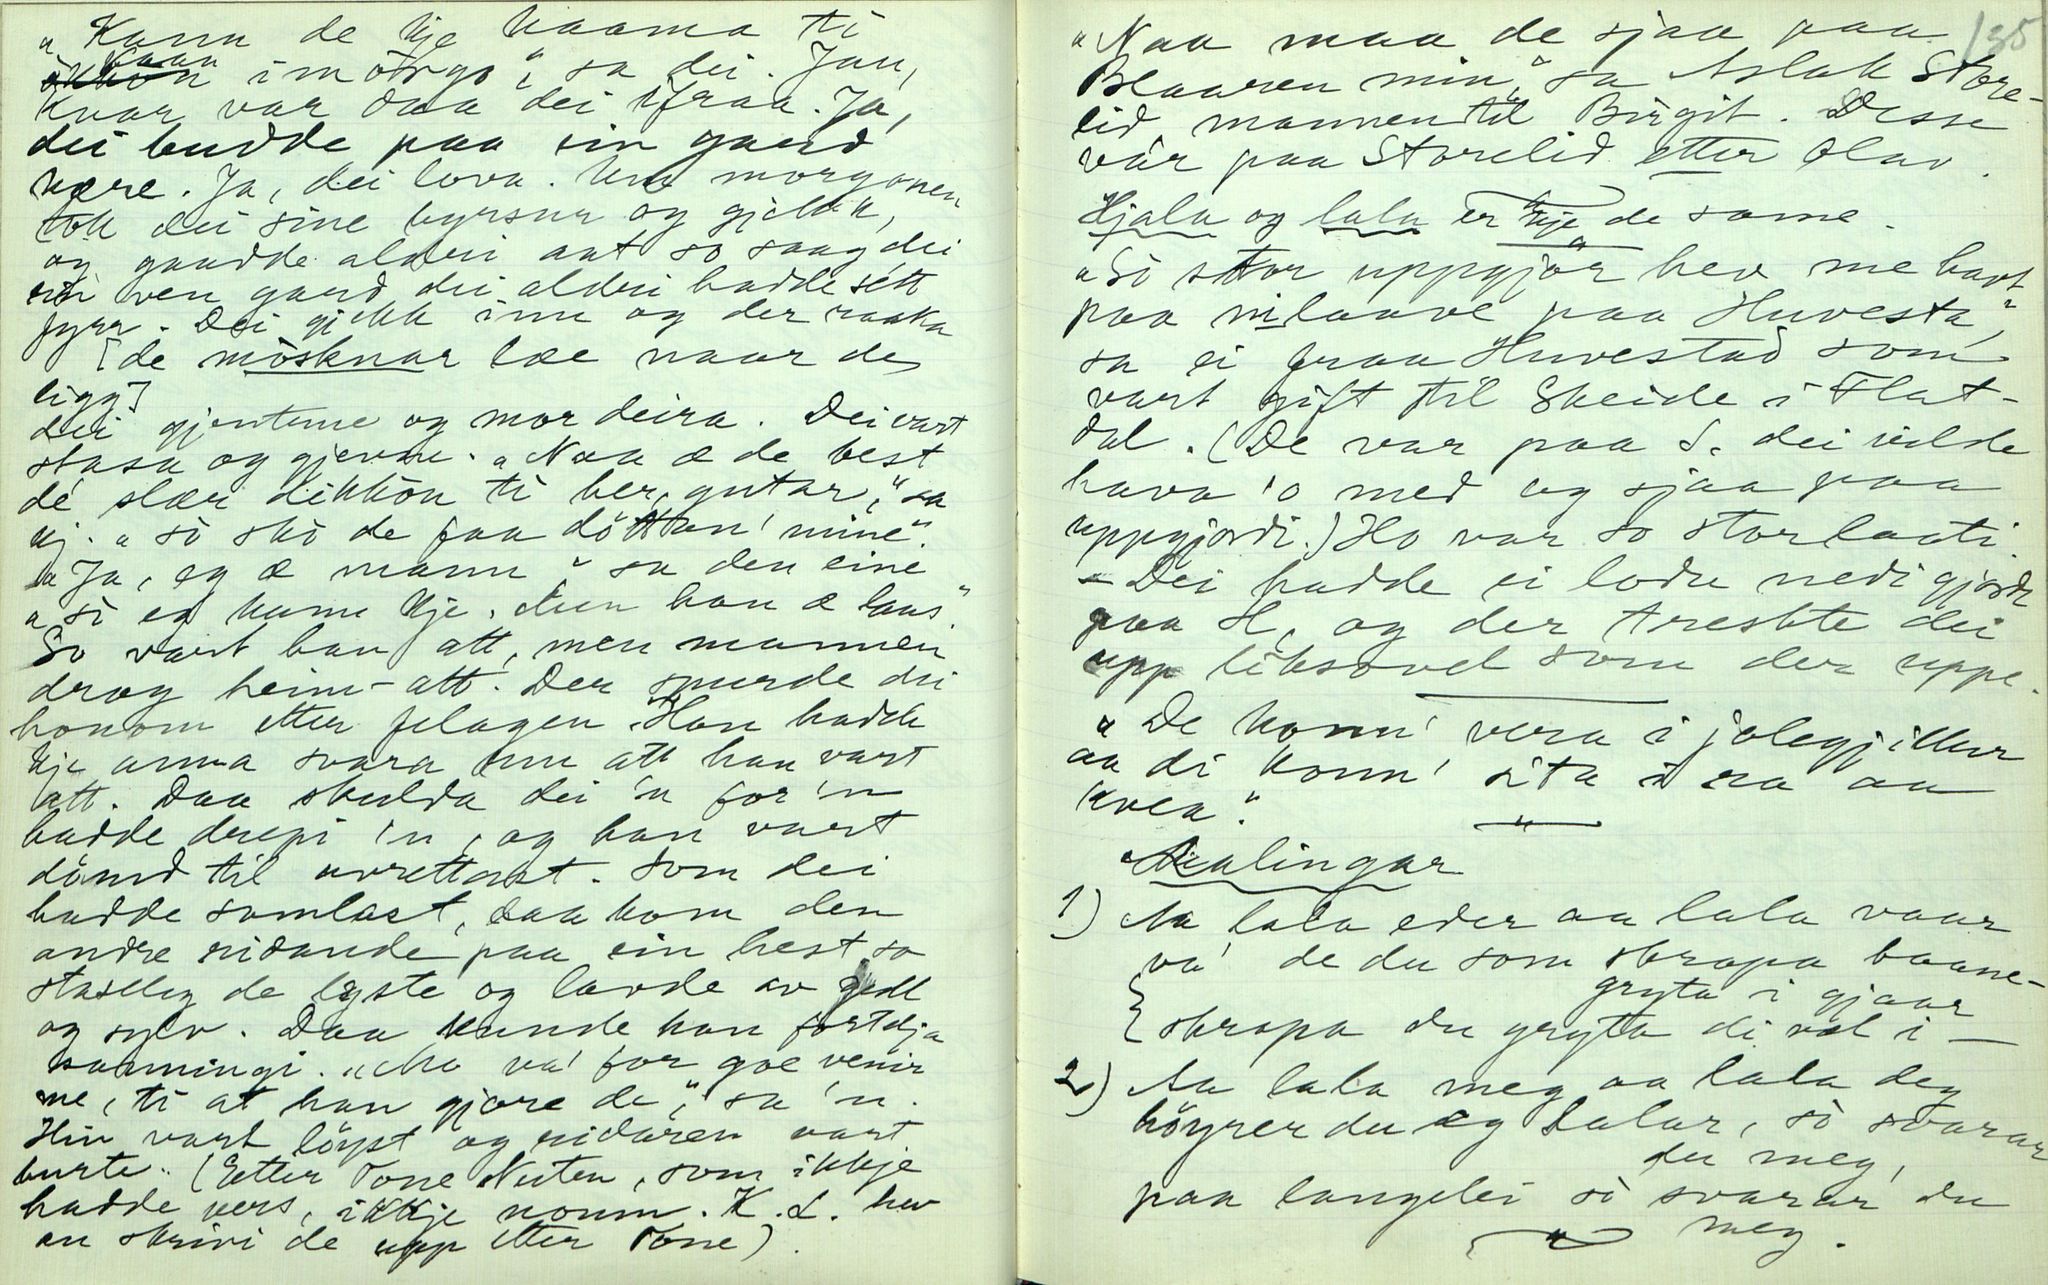 "Kann de kje kaama ti
kaan
i mårgo", sa dei. Jau,
kvar var daa dei ifraa. Ja,
dei budde paa ein gard
nære. Ja, dei lova. Um morgonen
tok dei sine byrsur og gjekk,
og gaadde aldri aat so saag dei
ein ven gard dei aldri hadde sett
fyrr. Dei gjekk inn og der raaka
[de mösknar læe naar de
ligg]
dei gjentene og mor deira. Dei vart
stasa og gjevne. "Naa æ de best
de slær dikkon ti her, gutar," sa
kj. "så ska de faa döttan' mine".
"Ja, eg æ mann" sa den eine
"så eg kann kje. Men han æ laus."
So vart han att, men mannen
drog heim-att. Der spurde dei
honom etter felagen. Han hadde
kje anna svara enn att han vart
att. Daa skulda dei 'n for 'n
hadde drepi 'n, og han vart
dömd til avrettast. Som dei
hadde somlast, daa kom den
andre ridande paa ein hest so
stasleg de lyste og lavde av gull
og sylv. Daa kunde han fortelja
sanningi. "Me va' for goe venir
me, ti at han gjore de," sa 'n.
Hin vart löyst og ridaren vart
burte. (Etter Tone Nuten, som ikkje
hadde vers, ikkje nomn. K. L. hev
an skrivi de upp etter Tone).
135
"Naa maa de sjaa paa
Blaaren min," sa Aslak Store-
lid, mannen til Birgit. Desse
var paa Storelid etter Olav.
Hjala og lala er kje de same.
"Så stor uppgjör hev me havt
paa nilaave paa Huvesta",
sa ei fraa Huvestad som
vart gift til Skeide i Flat-
dal. (De var paa S. dei vilde
hava 'o med og sjaa paa
uppgjordi.) Ho var so storlaati.
- Dei hadde ei lodu nedi gjorde
paa H, og der treskte dei
upp liksovel som der uppe.
"De konn' vera i jolegjikkur
aa di konn' sita i ra aa
kvea".
Lalingar
1) Aa lala eder aa lala vaar
va' de du som skrapa baane-
gryta i gjaar
skrapa du gryta di vel i —
2) Aa lala meg aa lala deg
höyrer du eg lalar, så svarar
du meg,
paa langelei så svarar du
meg.